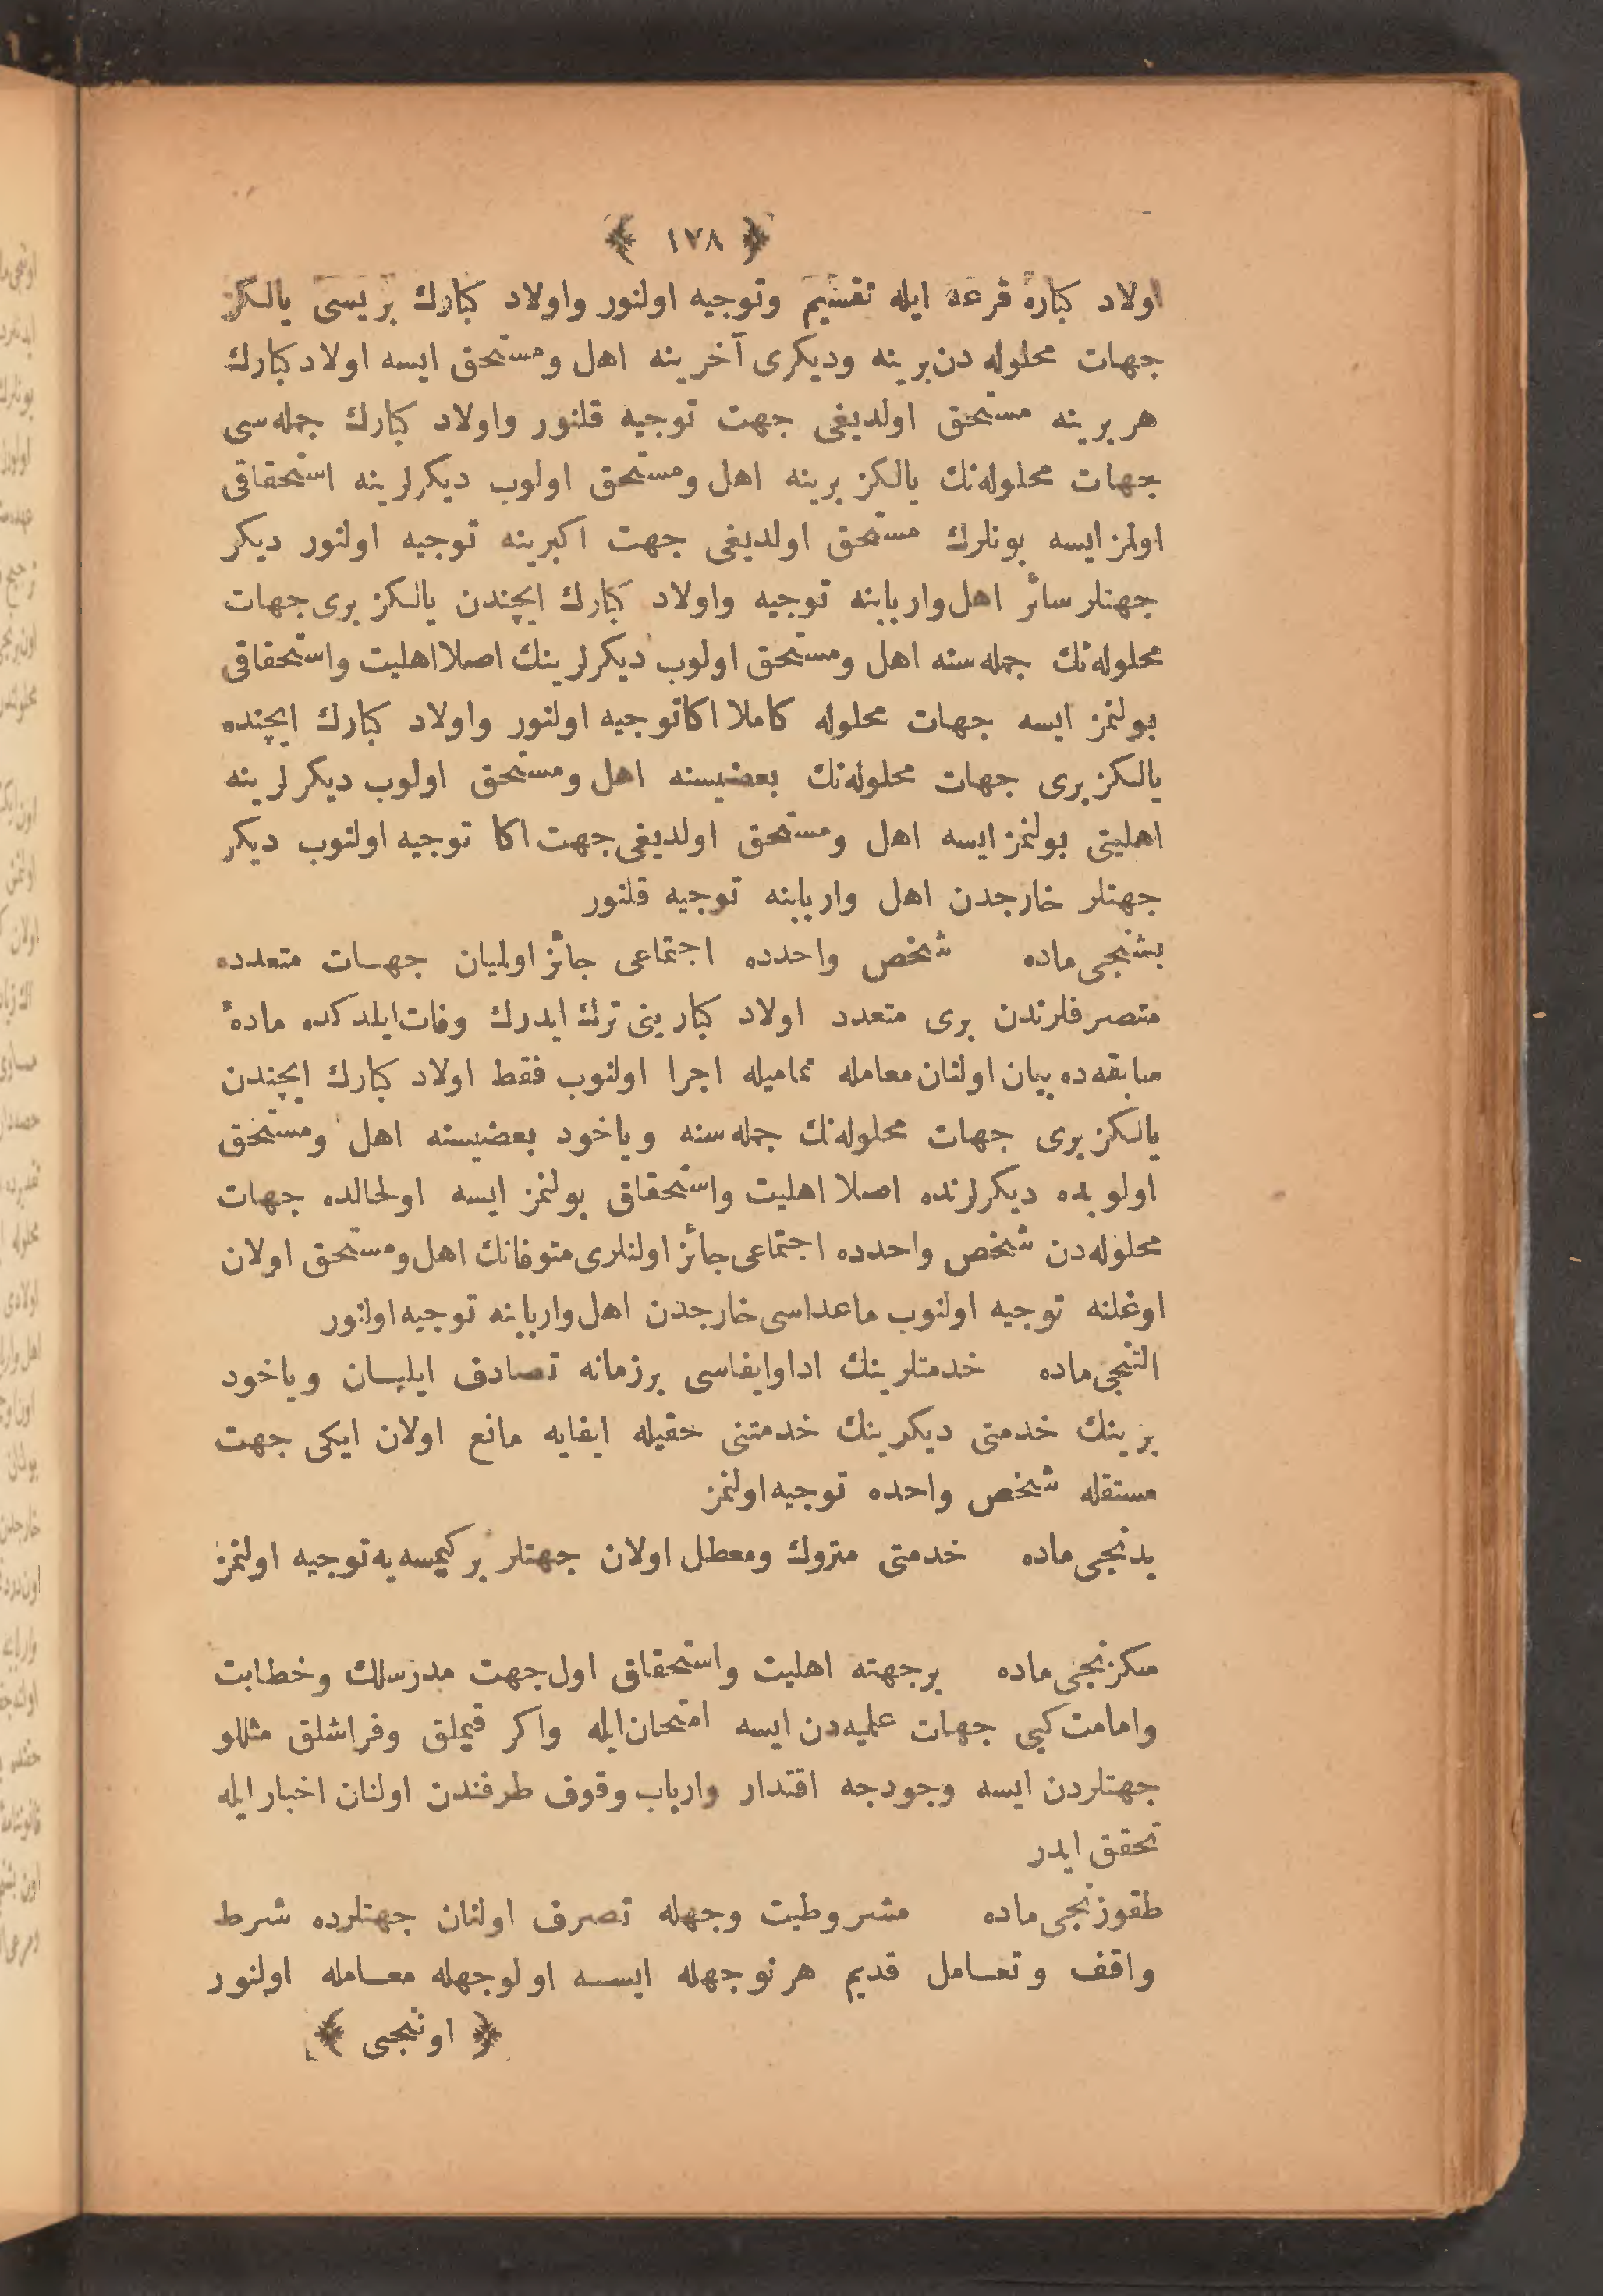 ﴿ ١٧٨ ﴾
اولاد كباره قرعه ايله تقسيم وتوجيه اولنور واولاد كبارك بريسى يالكز
جهات محلوله دن برينه وديكرى آخرينه اهل ومستحق ايسه اولاد كبارك
هر برينه مستحق اولديغى جهت توجيه قلنور واولاد كبارك جمله سى
جهات محلوله نك يالكز برينه اهل ومستحق اولوب ديكرلرينه استحقاقى
اولمز ايسه بونلرك مستحق اولديغى جهت اكبرينه توجيه اولنور ديكر
جهتلر سائر اهل واربابنه توجيه واولاد كبارك ايچندن يالكز برى جهات
محلوله نك جمله سنه اهل ومستحق اولوب ديكرلرينك اصلا اهليت واستحقاقى
بولنمز ايسه جهات محلوله كاملا اكا توجيه اولنور واولاد كبارك ايچنده
يالكز برى جهات محلوله نك بعضيسنه اهل ومستحق اولوب ديكرلرينه
اهليتى بولنمز ايسه اهل ومستحق اولديغى جهت اكا توجيه اولنوب ديكر
جهتلر خارجدن اهل واربابنه توجيه قلنور
بشنجى ماده شخص واحدده اجتماعى جائز اولميان جهات متعدده
متصرفلرندن برى متعدد اولاد كبارينى ترك ايدرك وفات ايلدكده مادۀ
سابقه ده بيان اولنان معامله تماميله اجرا اولنوب فقط اولاد كبارك ايچندن
يالكز برى جهات محلوله نك جمله سنه وياخود بعضيسنه اهل ومستحق
اولوبده ديكرلرنده اصلا اهليت واستحقاق بولنمز ايسه اولحالده جهات
محلوله دن شخص واحدده اجتماعى جائز اولنلرى متوفانك اهل ومستحق اولان
اوغلنه توجيه اولنوب ماعداسى خارجدن اهل واربابنه توجيه اولنور
التنجى ماده خدمتلرينك ادا وايفاسى برزمانه تصادف ايليان وياخود
برينك خدمتى ديكرينك خدمتنى حقيله ايفايه مانع اولان ايكى جهت
مستقله شخص واحده توجيه اولنمز
يدنجى ماده خدمتى متروك ومعطل اولان جهتلر بر كيمسه يه توجيه اولنمز
سكزنجى ماده برجهته اهليت واستحقاق اول جهت مدرسلك وخطابت
وامامت كبى جهات علميه دن ايسه امتحان ايله واكر قيملق وفراشلق مثللو
جهتلردن ايسه وجودجه اقتدار وارباب وقوف طرفندن اولنان اخبار ايله
تحقق ايدر
طقوزنجى ماده مشروطيت وجهله تصرف اولنان جهتلرده شرط
واقف وتعامل قديم هرنوجهله ايسه اولوجهله معامله اولنور
﴿ اوننجى ﴾